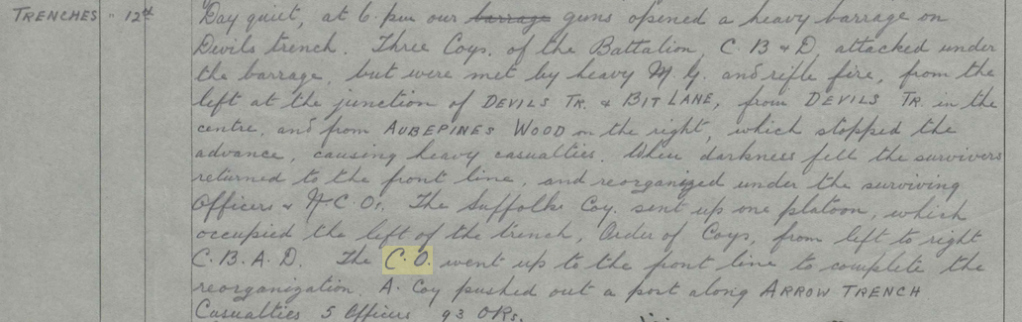 TRENCHES " 12th Day quiet, at 6 pm our barrage guns opened a heavy barrage on
Devils trench. Three Coys. of the Battalion, C. B & D, attacked under
the barrage, but were met by heavy M. G. and rifle fire, from the
left at the junction of DEVILS TR. & BIT LANE, from DEVILS TR. in the
centre, and from AUBEPINES WOOD on the right, which stopped the
advance, causing heavy casualties. When darkness fell the survivors
returned to the front line, and reorganized under the surviving
Officers & N.C.Os. The Suffolks Coy. sent up one platoon, which
occupied the left of the trench, Order of Coys, from left to right
C. B. A. D. The C.O. went up to the front line to complete the
reorganization. A. Coy pushed out a post along ARROW TRENCH
Casualties 5 Officers 93 ORs.